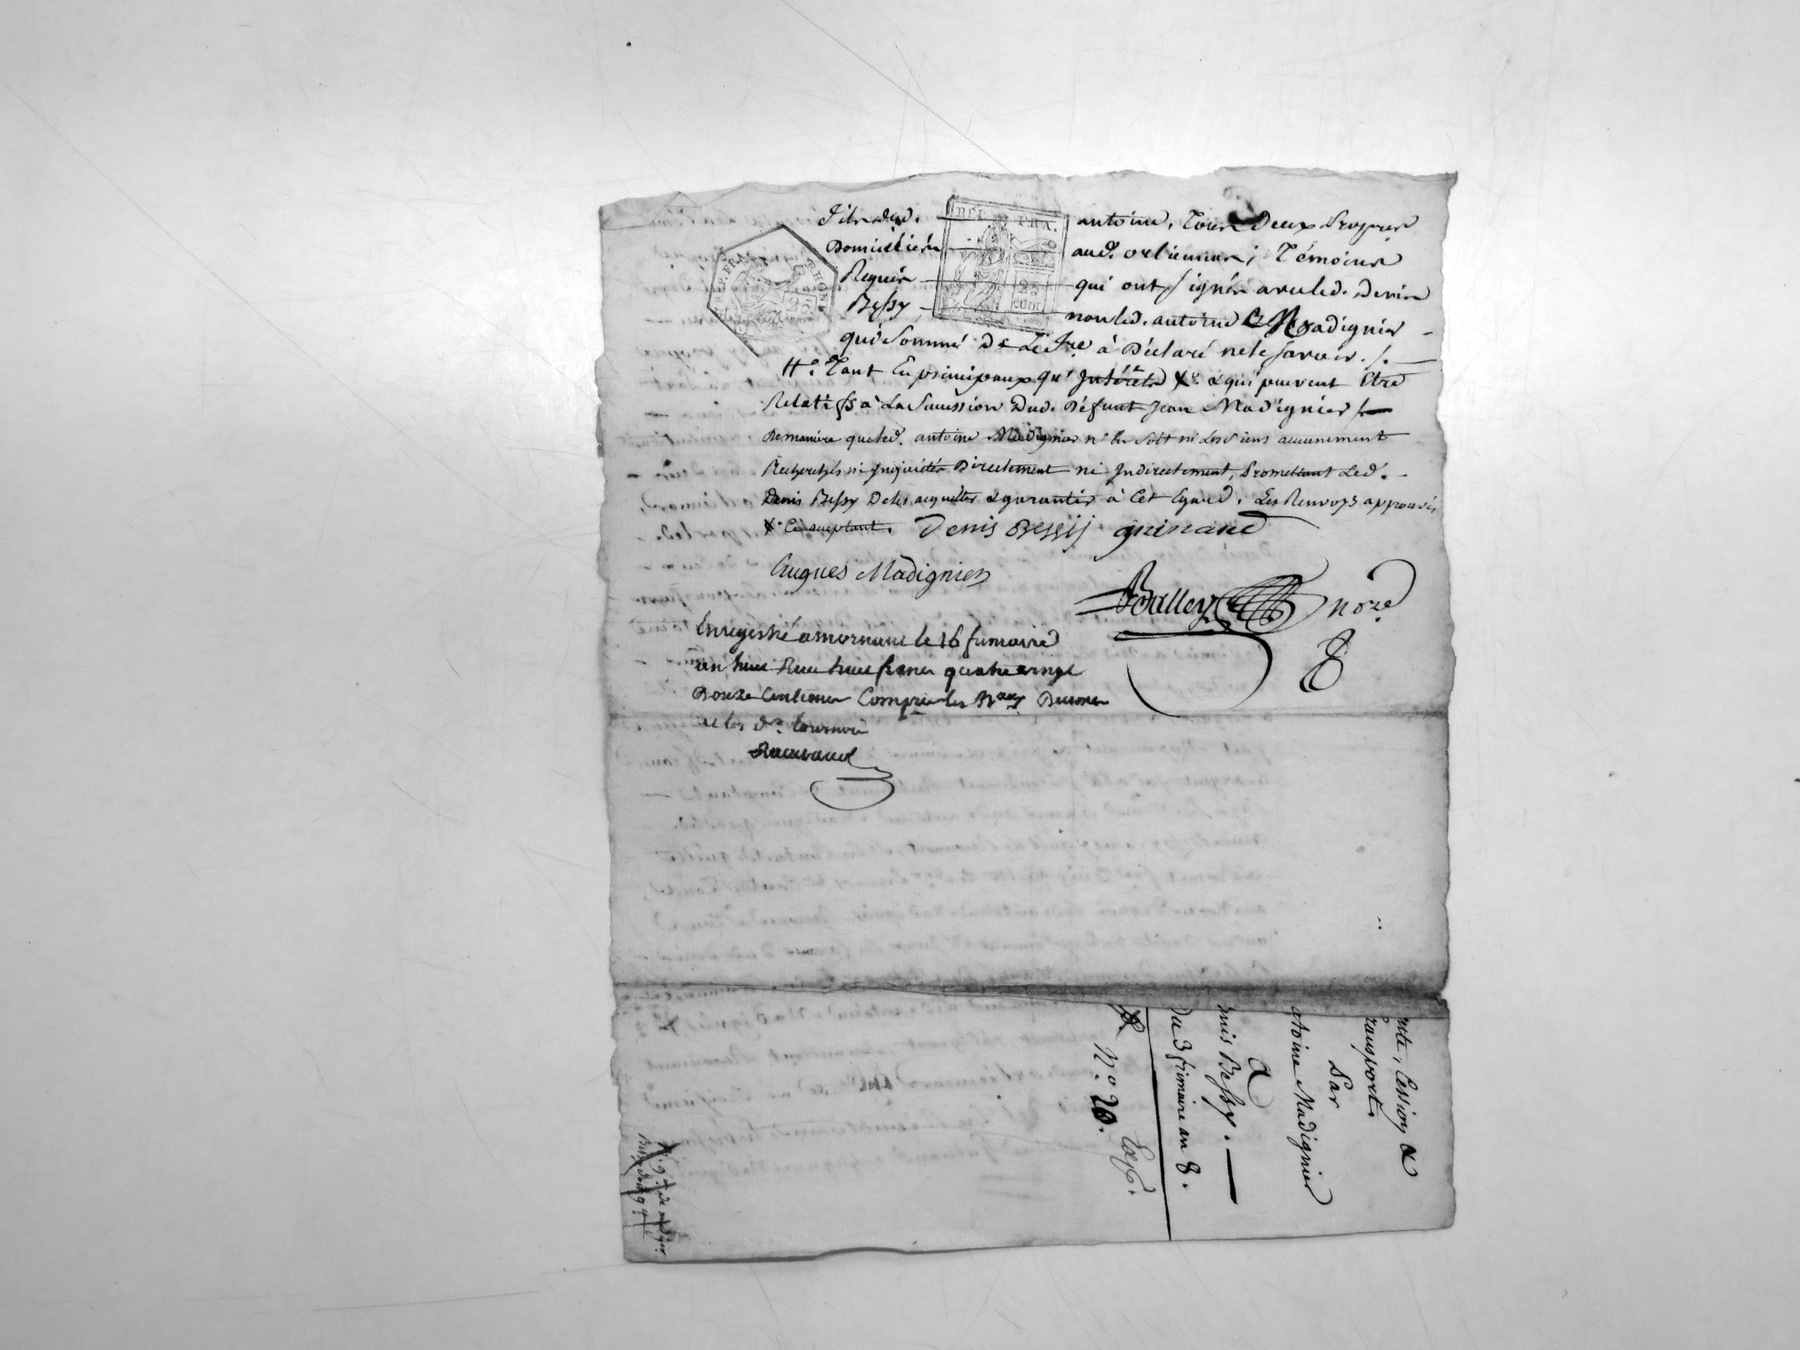 fils dud. antoine, tous Deux propres
Domiciliés aud. orliennas; Témoins
Requis qui ont signés avec led. Denis
Bessy non led. antoine Madignier
qui sommé de le fre à Déclaré ne le savoir ./.
RÉP. FRA.
REP. FRA.
RHONE
25
CENT
#.° Tant En principaux qu' Intérêts X.° & qui peuvent être
Relatifs à La Succession Dud. Défunt Jean Madignier
De maniere que led. antoine Madignier n'En soit ni Les Siens aucunement
Recherchés ni Inquiétés Directement ni Indirectement, Promettant Led.
Denis Bessy De les acquitter & garantir à Cet Egard. Les Renvoys approuvés
X.° Ce acceptant. Denis Bessy guinand
hugues Madignier
Balley nore
Enregistré a mornant le 16 frimaire
an huit Reçu huit francs quatre vingt
Douze Centimes Compris les
et les d.
8
Vente, Cession, &
Transport.
Par
Antoine Madignier
A
Denis Bessy.
Du 3 frimaire an 8.
N.° 20. Exp.